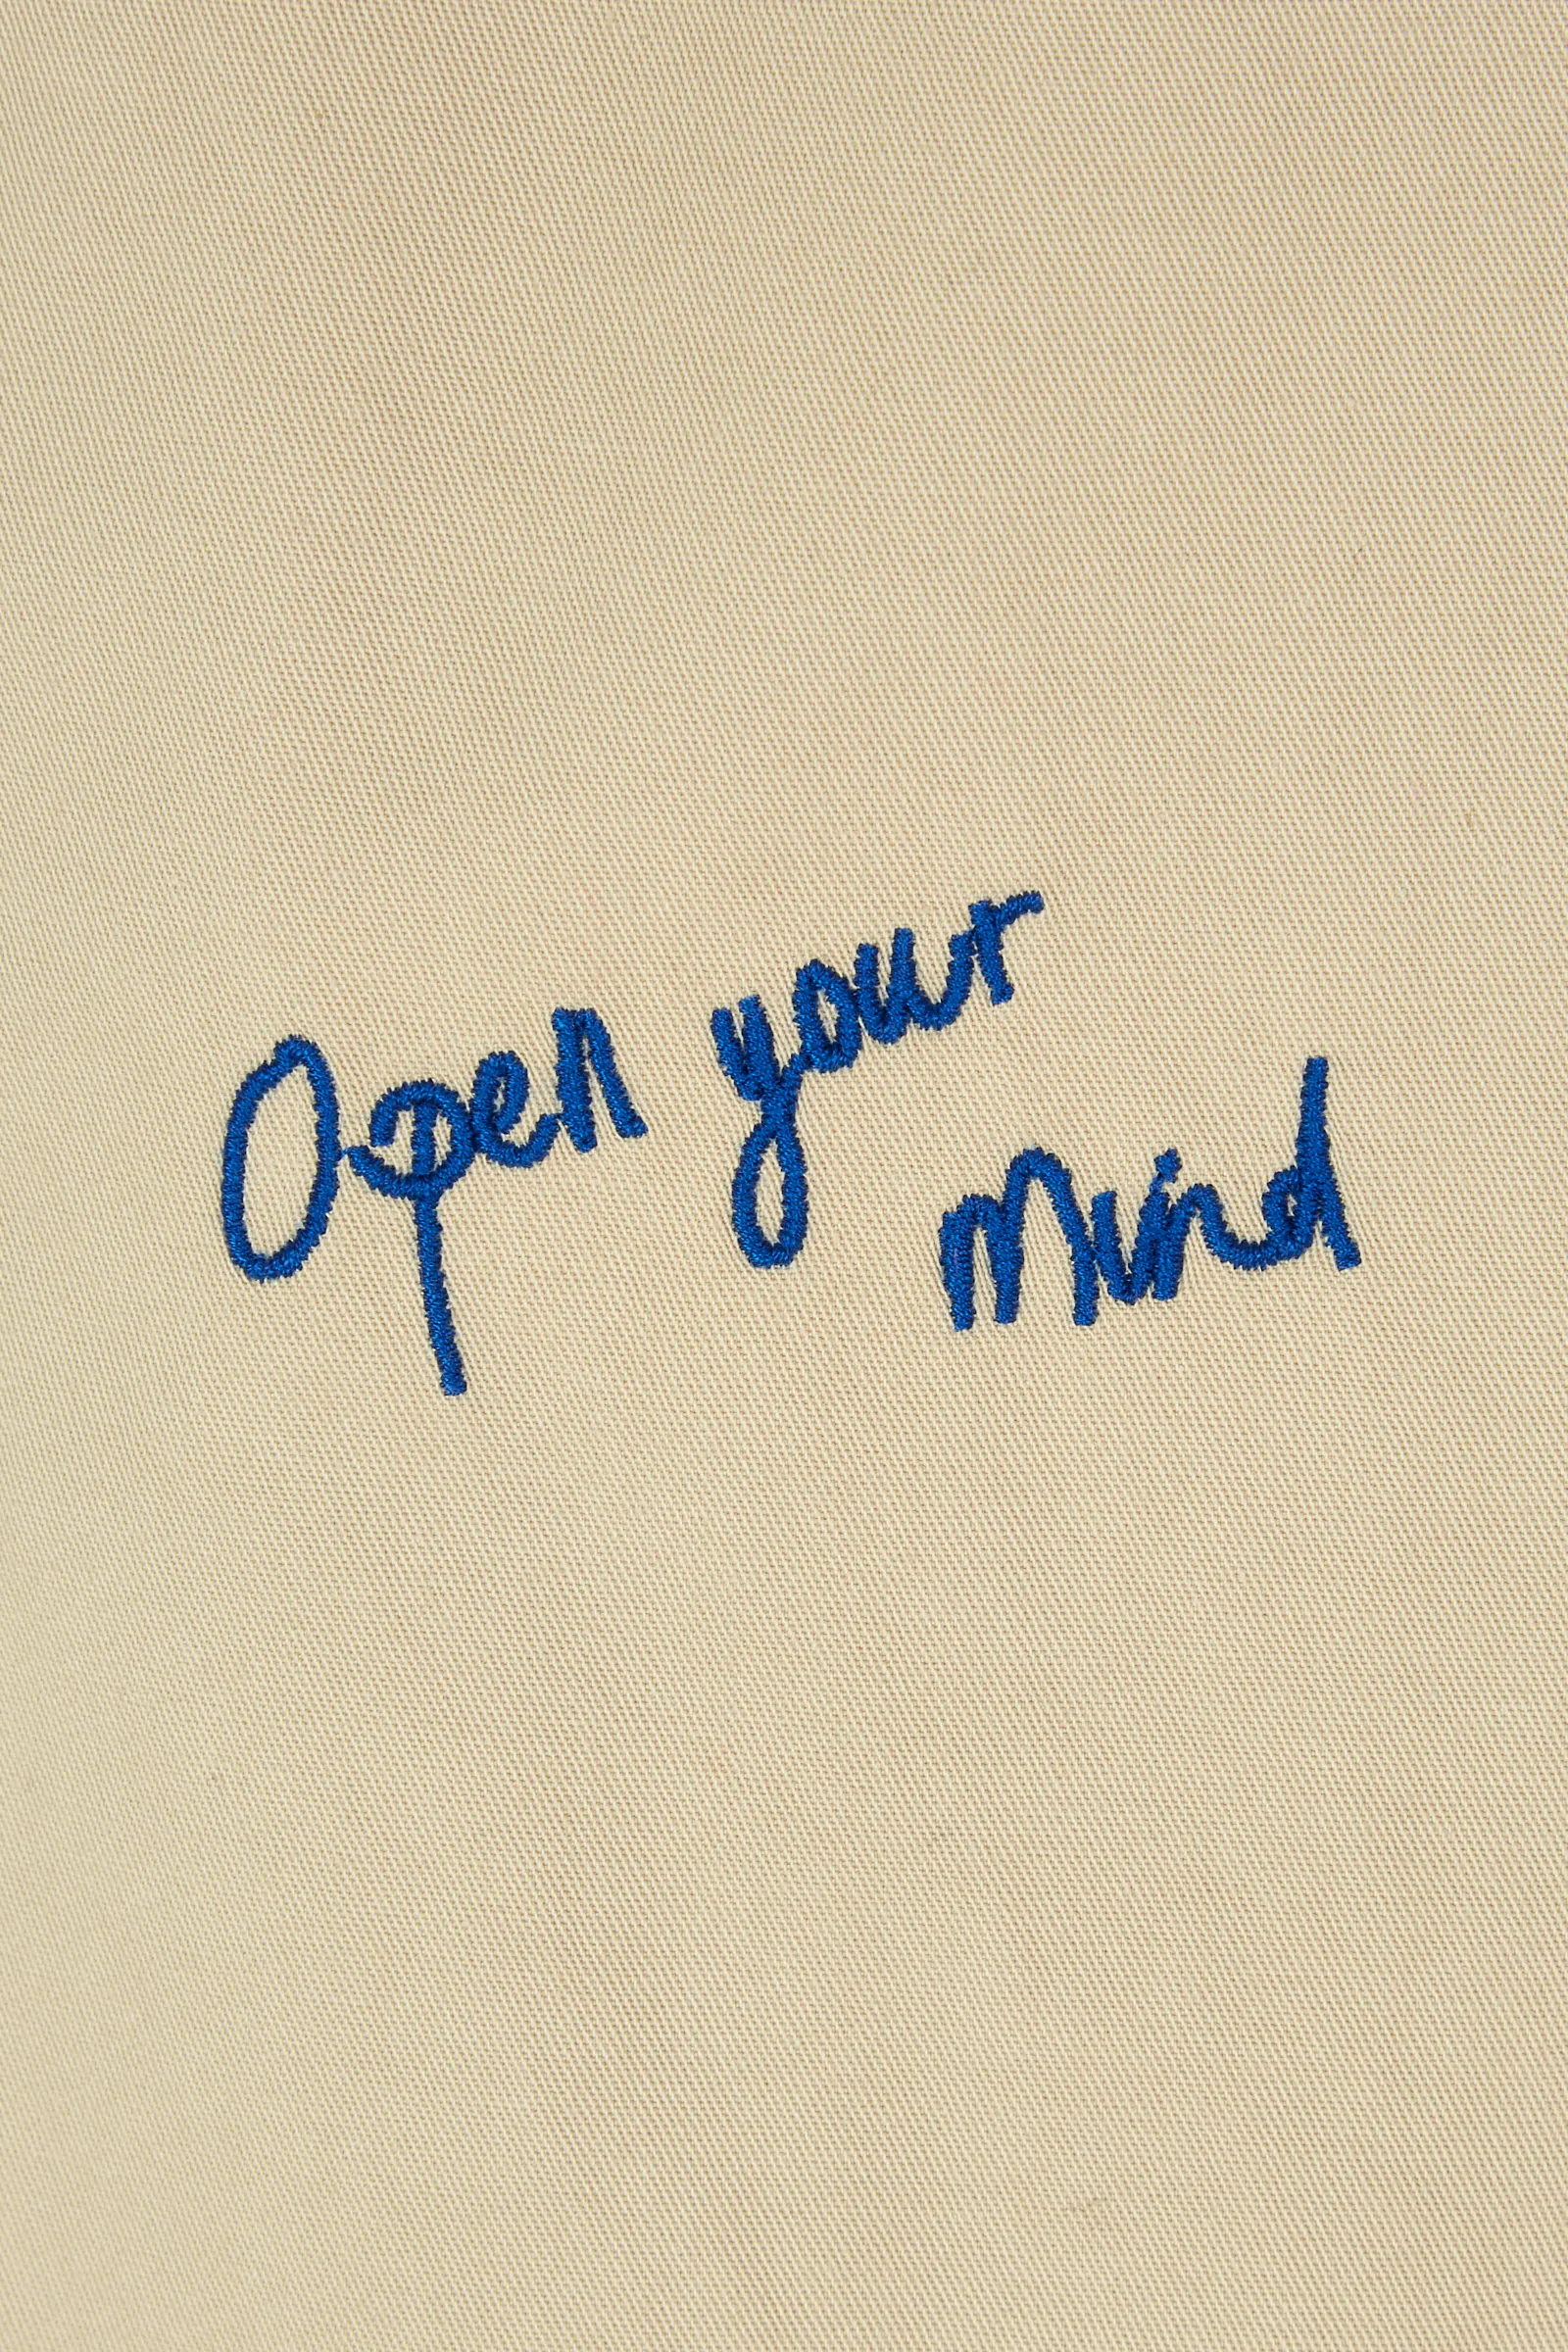 Open your
mind